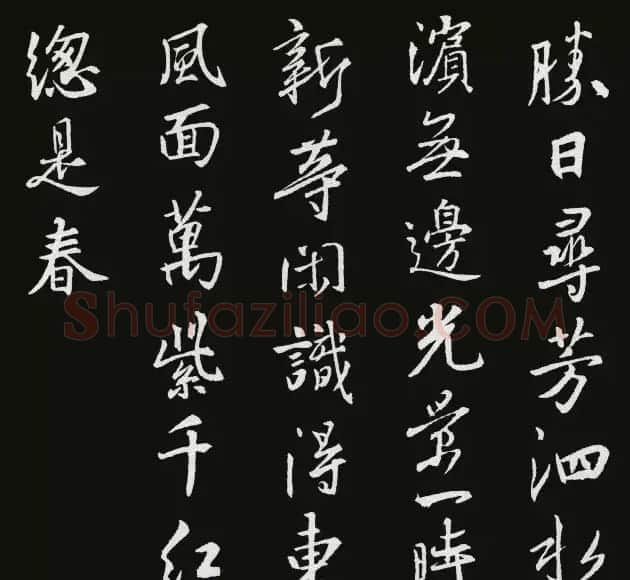 勝日尋芳泗水
濱無邊光景一時
新等閑識得東
風面萬紫千紅
總是春
Shufaziliao.COM